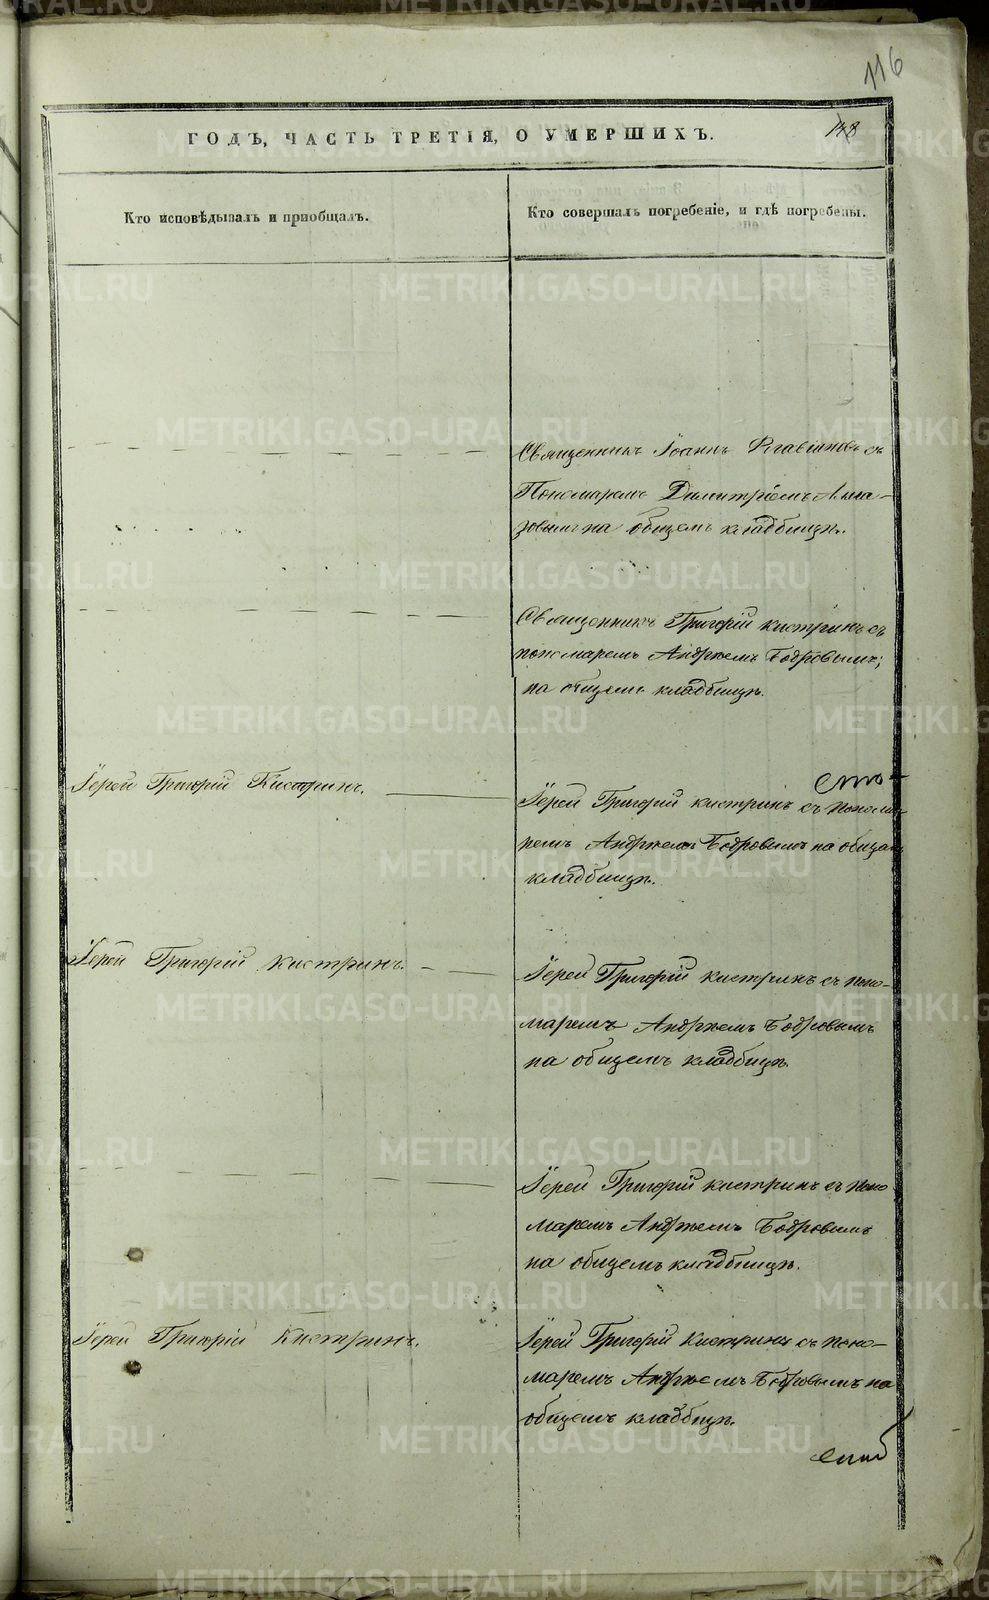 116
ГОДЪ, ЧАСТЬ ТРЕТІЯ, О УМЕРШИХЪ.
148
Кто исповѣдывалъ и пріобщалъ.
Кто совершалъ погребеніе, и гдѣ погребены.
Священникъ Іоаннъ съ
Пономаремъ Димитріемъ Алма-
зовымъ на общемъ кладбищѣ.
Священникъ Григорій Кистринъ съ
пономаремъ Андреемъ Бобровымъ;
на общемъ кладбищѣ.
Іерей Григорій Кистринъ.
Іерей Григорій Кистринъ съ понома-
ремъ Андреемъ Бобровымъ на общемъ
кладбищѣ.
Іерей Григорій Кистринъ.
Іерей Григорій Кистринъ съ поно-
маремъ Андреемъ Бобровымъ
на общемъ кладбищѣ.
Іерей Григорій Кистринъ съ поно-
маремъ Андреемъ Бобровымъ
на общемъ кладбищѣ.
Іерей Григорій Кистринъ.
Іерей Григорій Кистринъ съ поно-
маремъ Андреемъ Бобровымъ на
общемъ кладбищѣ.
METRIKI.GASO-URAL.RU